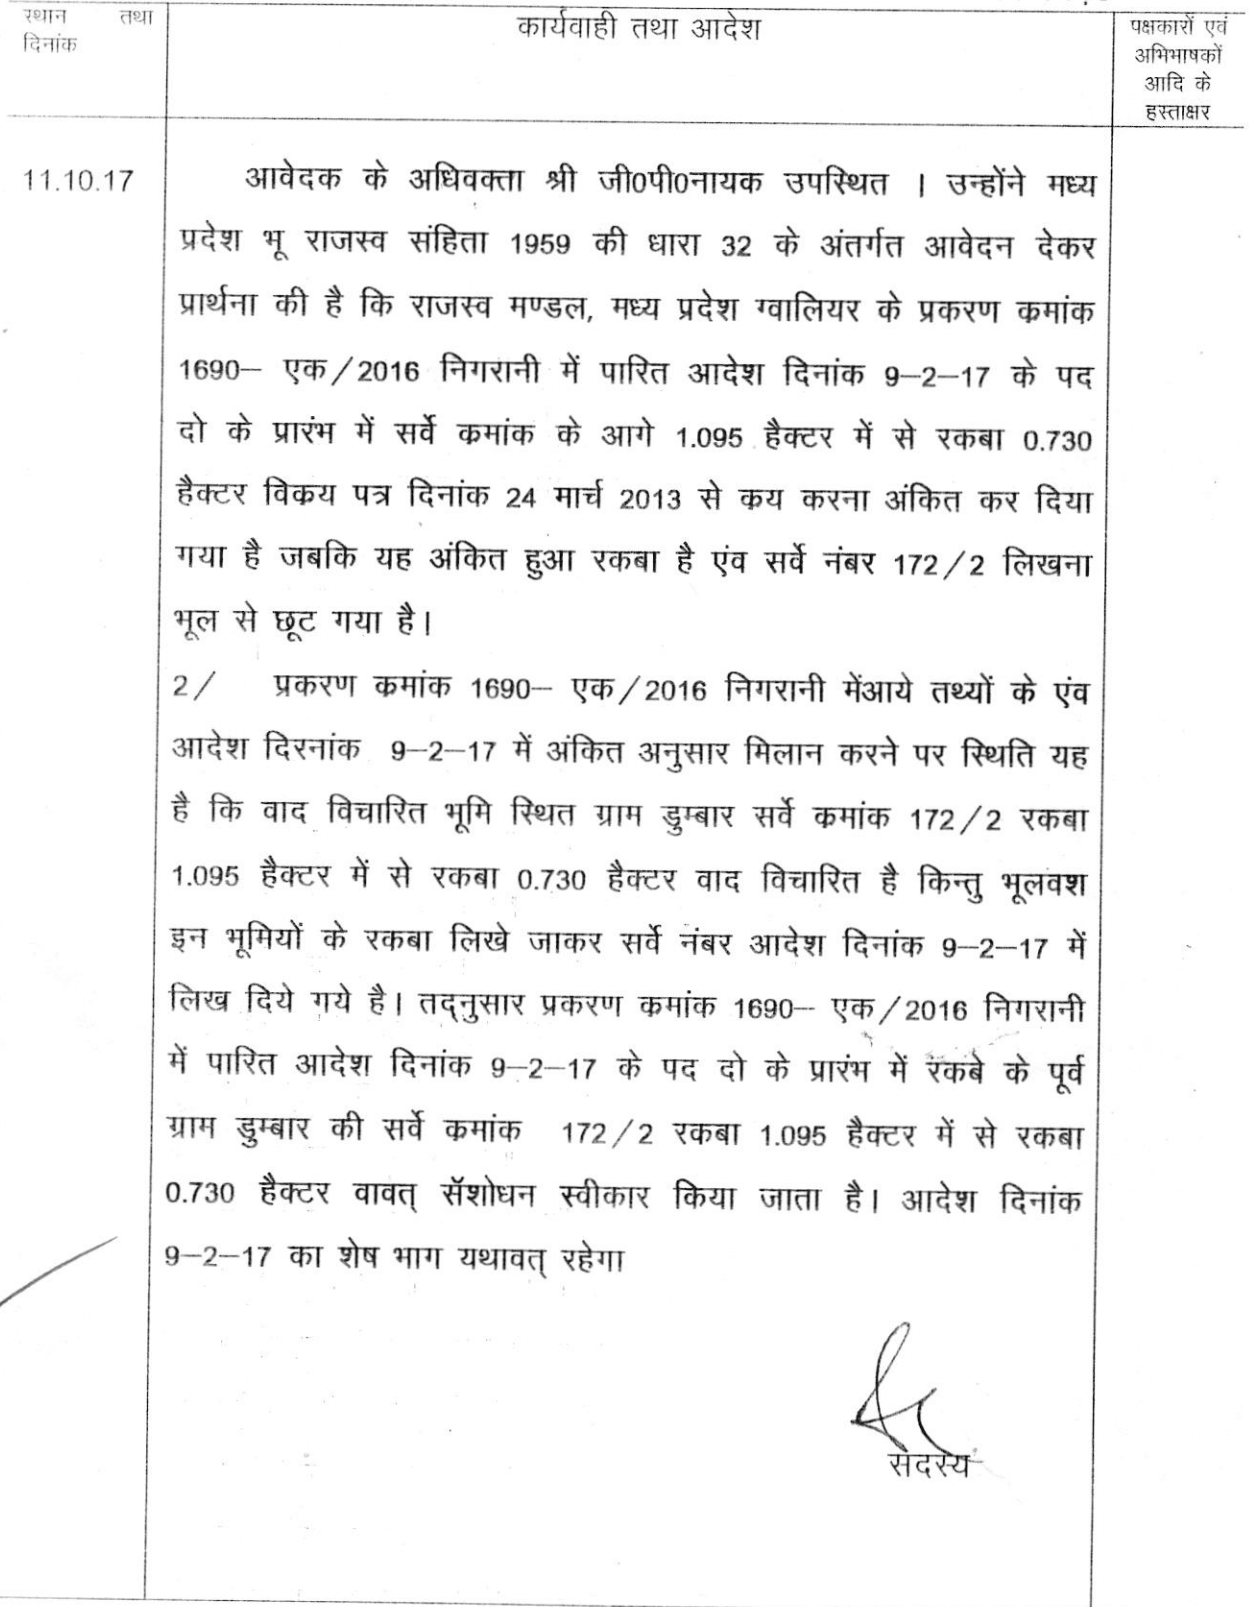 स्थान तथा
दिनांक
कार्यवाही तथा आदेश
पक्षकारों एवं
अभिभाषकों
आदि के
हस्ताक्षर
11.10.17
आवेदक के अधिवक्ता श्री जी0पी0नायक उपस्थित । उन्होंने मध्य
प्रदेश भू राजस्व संहिता 1959 की धारा 32 के अंतर्गत आवेदन देकर
प्रार्थना की है कि राजस्व मण्डल, मध्य प्रदेश ग्वालियर के प्रकरण कमांक
1690– एक/2016 निगरानी में पारित आदेश दिनांक 9–2–17 के पद
दो के प्रारंभ में सर्वे कमांक के आगे 1.095 हैक्टर में से रकबा 0.730
हैक्टर विकय पत्र दिनांक 24 मार्च 2013 से कय करना अंकित कर दिया
गया है जबकि यह अंकित हुआ रकबा है एंव सर्वे नंबर 172/2 लिखना
भूल से छूट गया है।
2/ प्रकरण कमांक 1690– एक/2016 निगरानी मेंआये तथ्यों के एंव
आदेश दिरनांक 9–2–17 में अंकित अनुसार मिलान करने पर स्थिति यह
है कि वाद विचारित भूमि स्थित ग्राम डुम्बार सर्वे कमांक 172/2 रकबा
1.095 हैक्टर में से रकबा 0.730 हैक्टर वाद विचारित है किन्तु भूलवश
इन भूमियों के रकबा लिखे जाकर सर्वे नंबर आदेश दिनांक 9–2–17 में
लिख दिये गये है। तद्नुसार प्रकरण कमांक 1690– एक/2016 निगरानी
में पारित आदेश दिनांक 9–2–17 के पद दो के प्रारंभ में रकबे के पूर्व
ग्राम डुम्बार की सर्वे कमांक 172/2 रकबा 1.095 हैक्टर में से रकबा
0.730 हैक्टर वावत् सॅशोधन स्वीकार किया जाता है। आदेश दिनांक
9–2–17 का शेष भाग यथावत् रहेगा
सदस्य